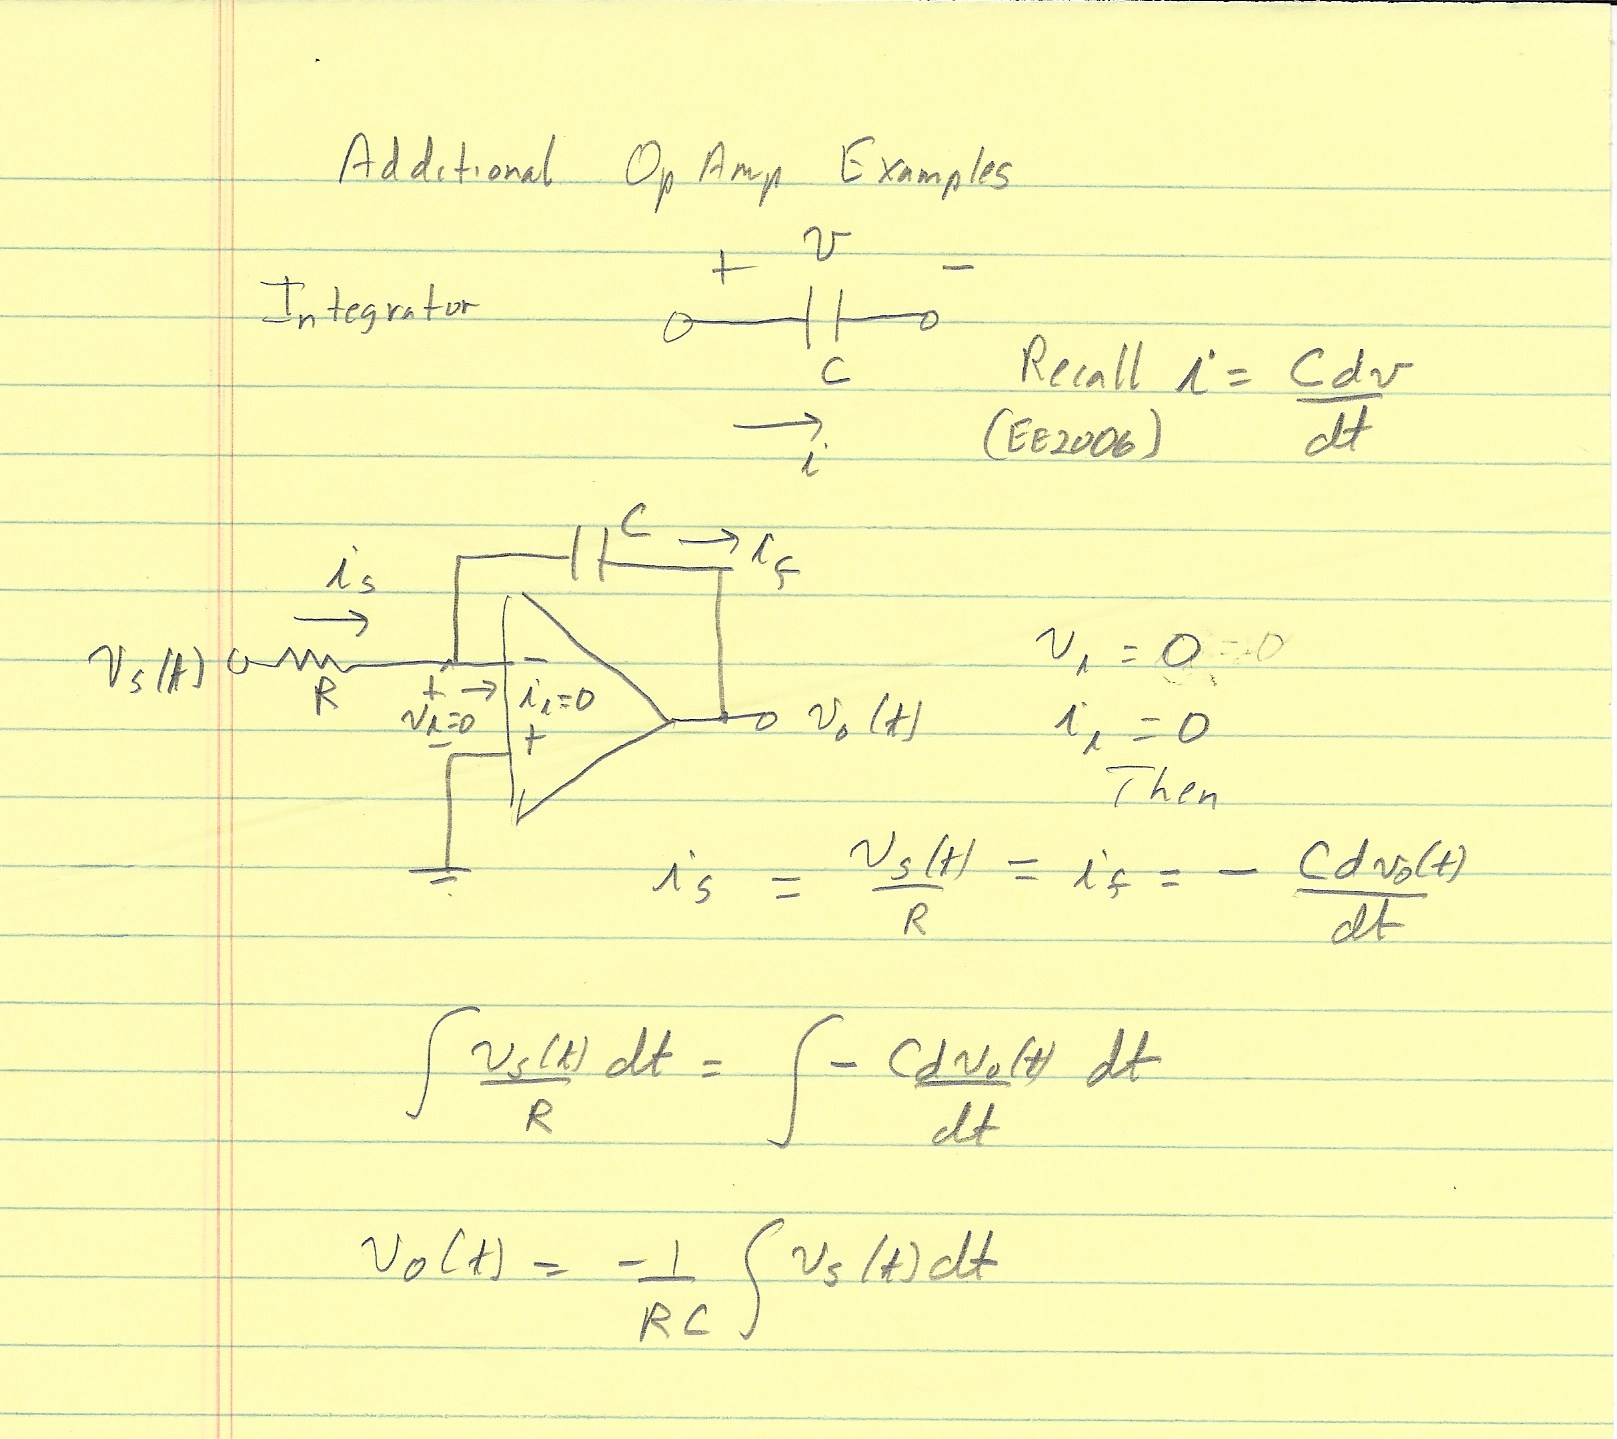 Additional Op Amp Examples
+ v -
Integrator
C
Recall i = C dv / dt
(EE2006)
i
C → i_f
i_s
v_s(t)
R
-
+ → i_i=0
v_i=0
-
+
v_o(t)
v_i = 0 = 0
i_i = 0
Then
i_s = v_s(t) / R = i_f = - C d v_o(t) / dt
∫ v_s(t) / R dt = ∫ - C d v_o(t) / dt dt
v_o(t) = -1 / RC ∫ v_s(t) dt